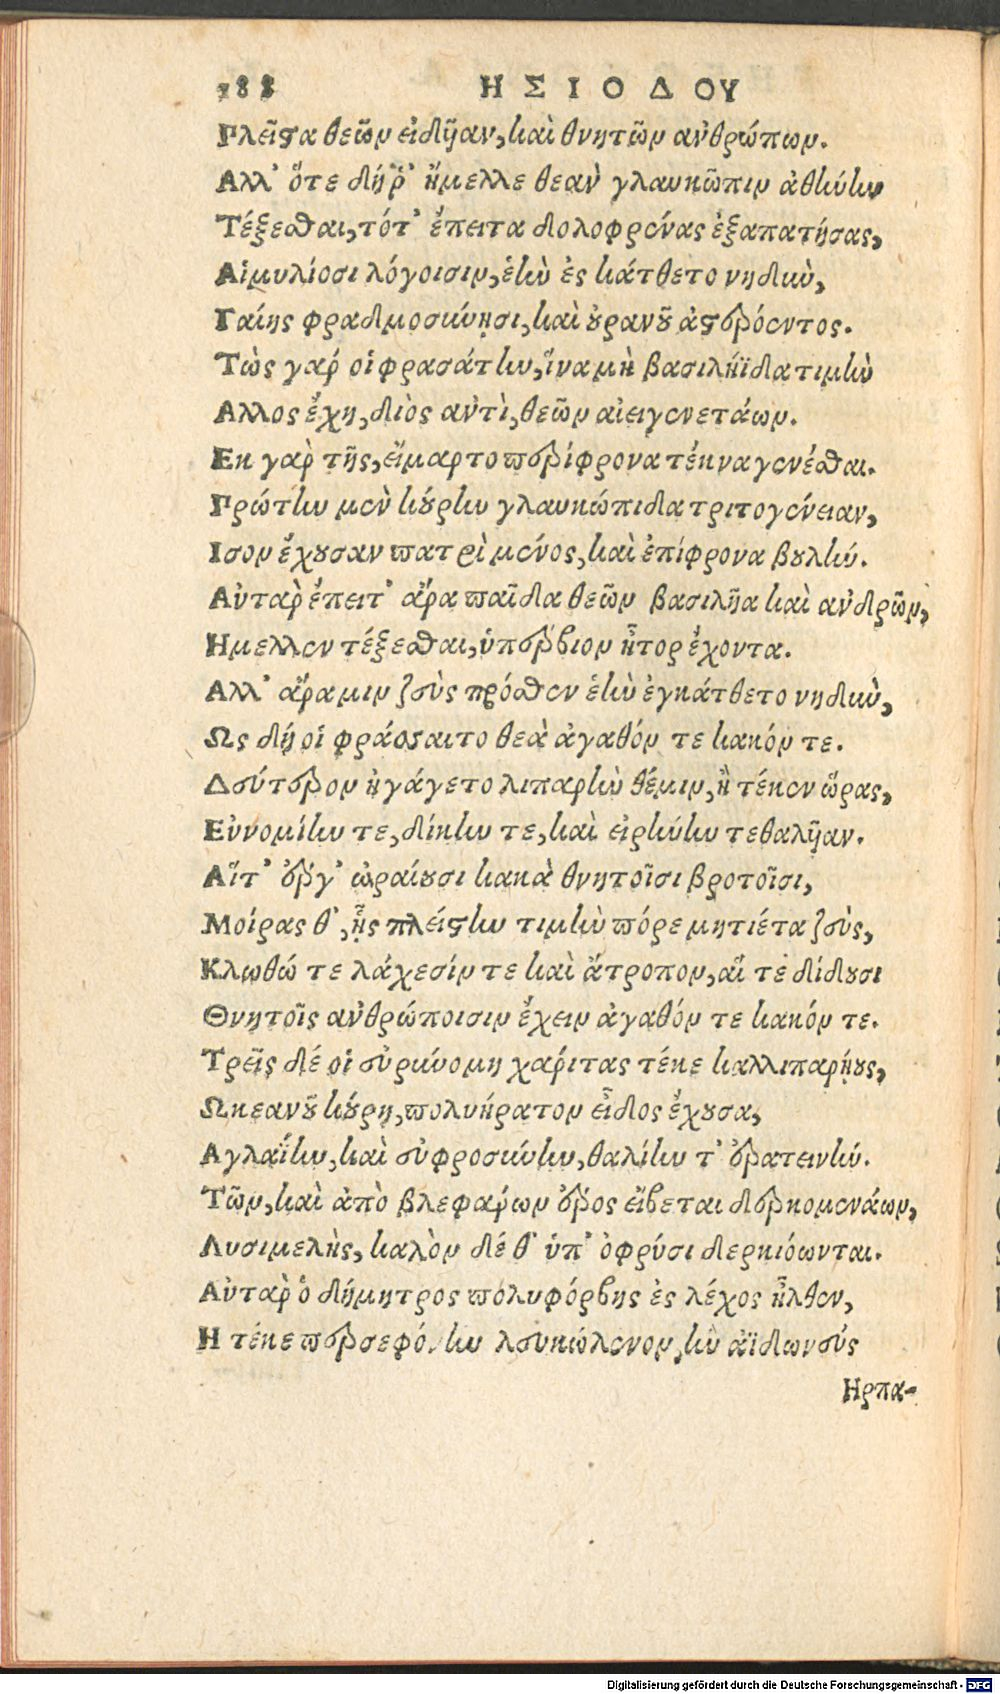 188 ΗΣΙΟΔΟΥ
Πλεῖστα θεῶν εἰδῦιαν, καὶ θνητῶν ἀνθρώπων.
Αλλ' ὅτε δή ῥ' ἤμελλε θεὰν γλαυκῶπιν ἀθήνην
Τέξεσθαι, τότ' ἔπειτα δολοφρένας ἐξαπατήσας,
Αἱμυλίοσι λόγοισιν, ἑὴν ἐς κάτθετο νηδὺν,
Γαίης φραδμοσύνησι, καὶ οὐρανοῦ ἀστερόεντος.
Τὼς γάρ οἱ φρασάτην, ἵνα μὴ βασιληΐδα τιμὴν
Αλλος ἔχῃ, διὸς ἀντὶ, θεῶν αἰειγενετάων.
Εκ γὰρ τῆς, εἵμαρτο περίφρονα τέκνα γενέσθαι.
Πρώτην μὲν κούρην γλαυκώπιδα τριτογένειαν,
Ισον ἔχουσαν πατρὶ μένος, καὶ ἐπίφρονα βουλήν.
Αὐτὰρ ἔπειτ' ἄρα παῖδα θεῶν βασιλῆα καὶ ἀνδρῶν,
Ημελλεν τέξεσθαι, ὑπέρβιον ἦτορ ἔχοντα.
Αλλ' ἄρα μιν ζεὺς πρόσθεν ἑὴν ἐγκάτθετο νηδὺν,
Ως δή οἱ φράσσαιτο θεὰ ἀγαθόν τε κακόν τε.
Δεύτερον ἠγάγετο λιπαρὴν θέμιν, ἣ τέκεν ὥρας,
Εὐνομίην τε, δίκην τε, καὶ εἰρήνην τεθαλῦιαν.
Αἵτ' ἔργ' ὠραίουσι κακὰ θνητοῖσι βροτοῖσι,
Μοίρας θ', ᾗς πλείστην τιμὴν πόρε μητιέτα ζεὺς,
Κλωθώ τε λάχεσίν τε καὶ ἄτροπον, αἵ τε δίδουσι
Θνητοῖς ἀνθρώποισιν ἔχειν ἀγαθόν τε κακόν τε.
Τρεῖς δέ οἱ εὐρυνόμη χάριτας τέκε καλλιπαρῄους,
Ωκεανοῦ κούρη, πολυήρατον εἶδος ἔχουσα,
Αγλαΐην, καὶ εὐφροσύνην, θαλίην τ' ἐρατεινήν.
Τῶν, καὶ ἀπὸ βλεφάρων ἔρος εἴβεται δερκομενάων,
Λυσιμελὴς, καλὸν δέ θ' ὑπ' ὀφρύσι δερκιόωνται.
Αὐτὰρ ὁ δήμητρος πολυφόρβης ἐς λέχος ἦλθεν,
Η τέκε λευκώλενον, ἣν ἀϊδωνεύς
Ηρπα-
Digitalisierung gefördert durch die Deutsche Forschungsgemeinschaft - DFG